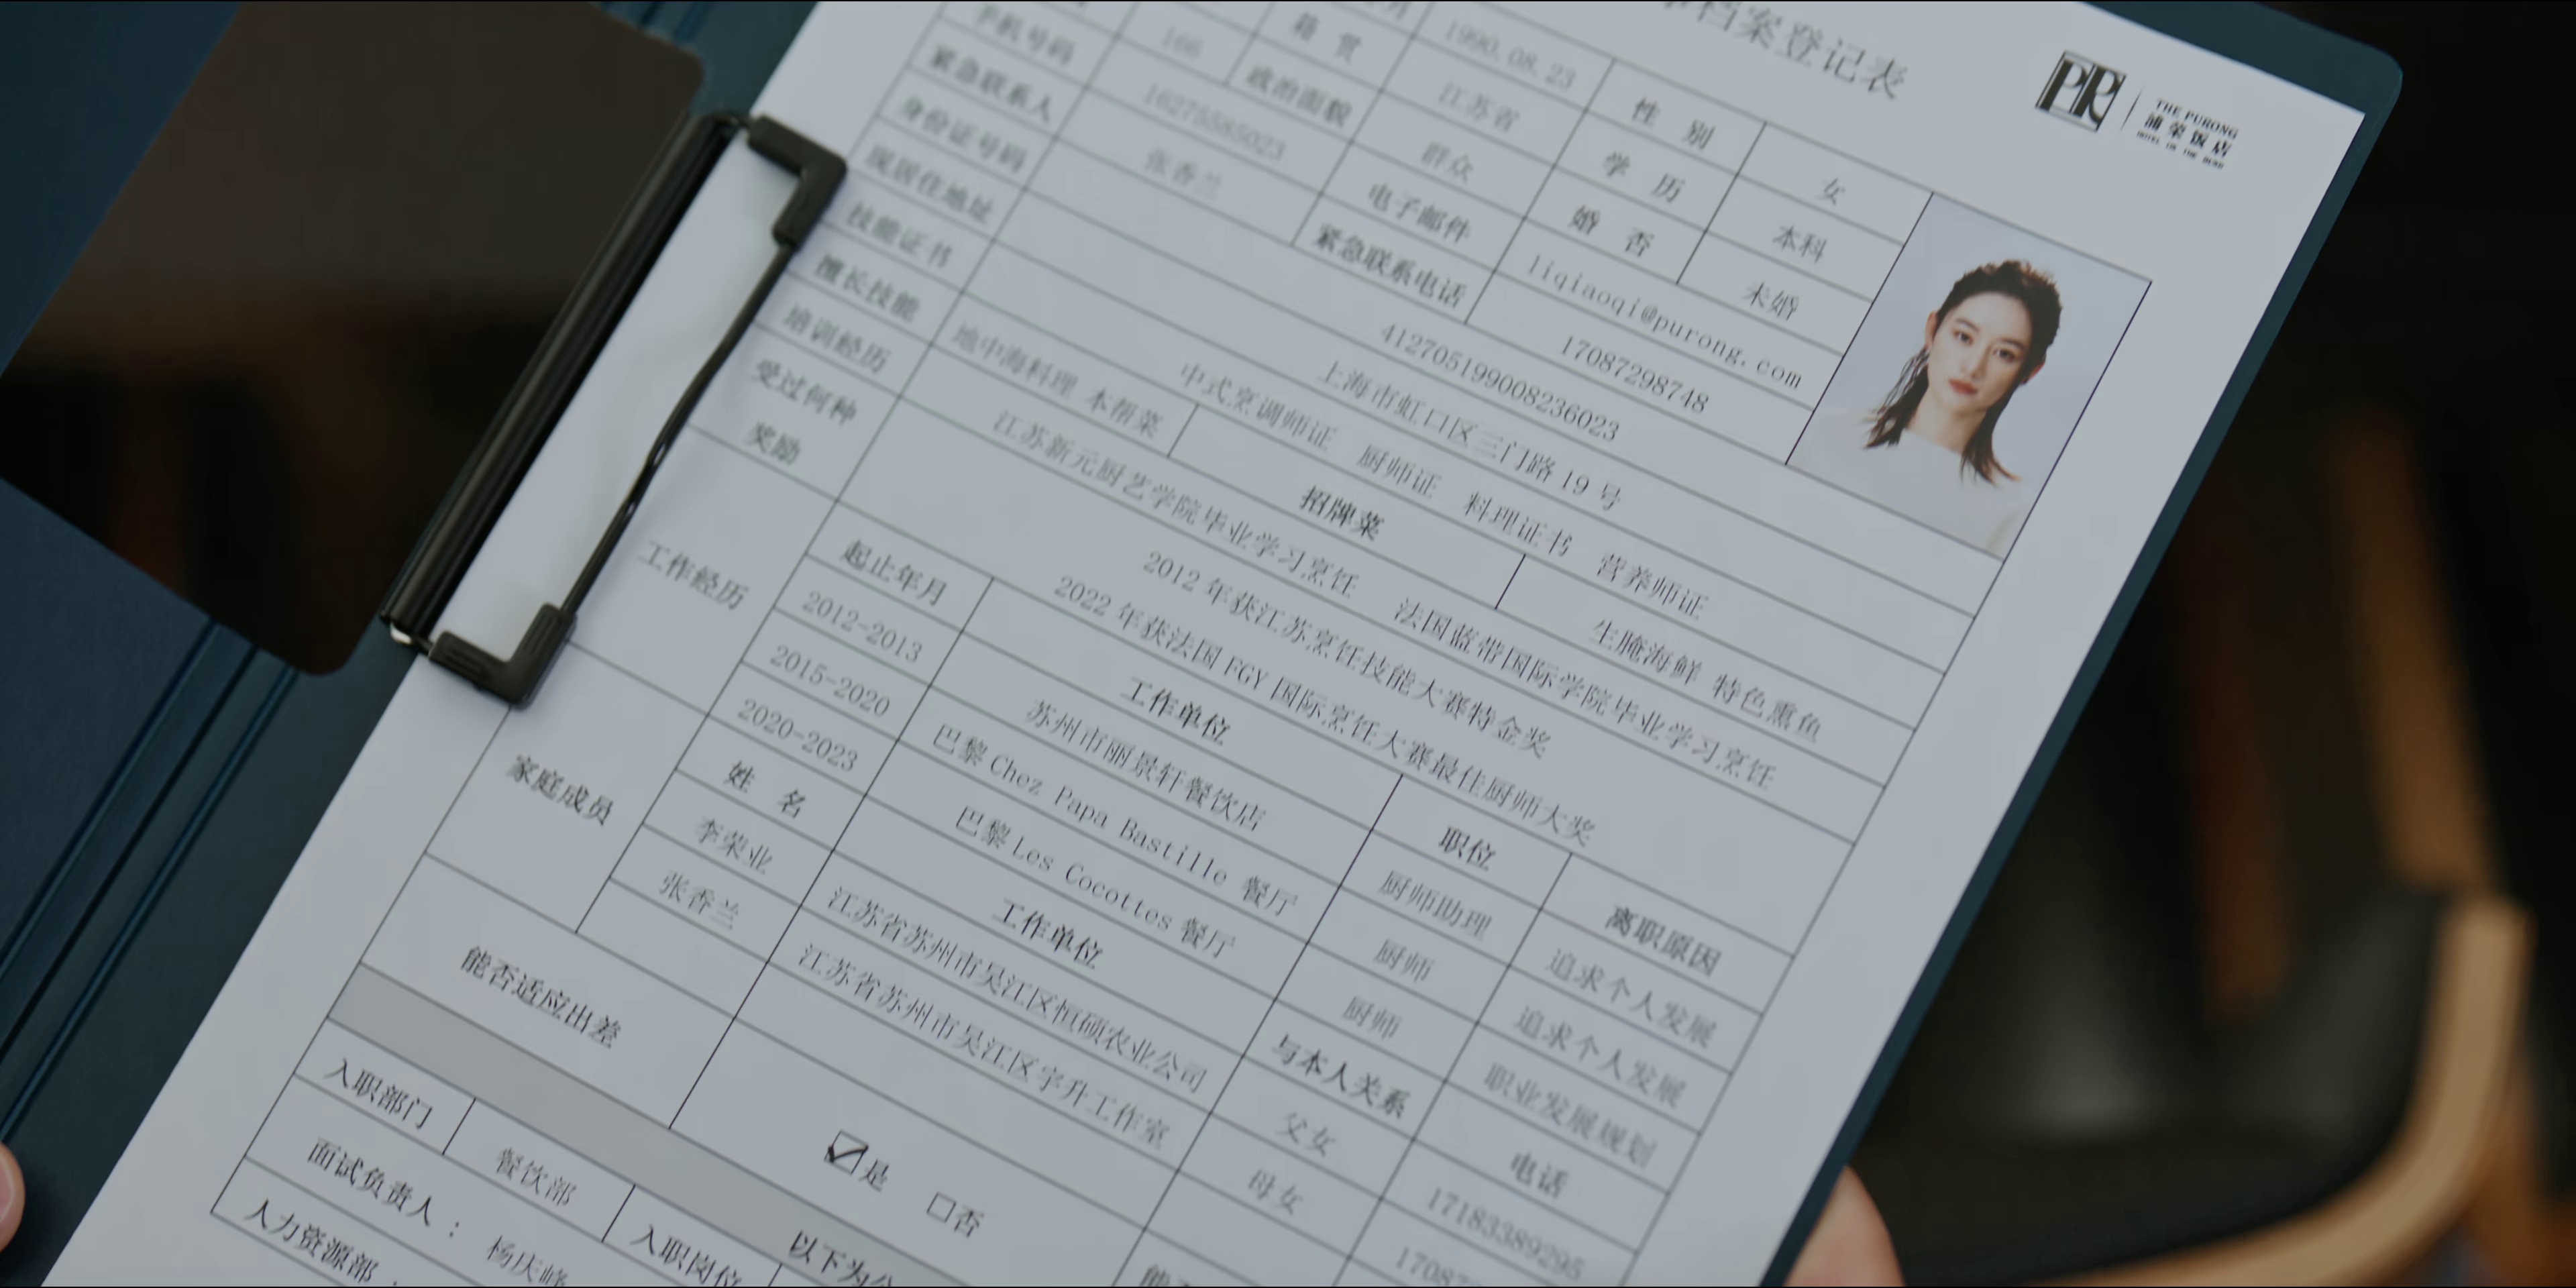 档案登记表
PR
THE PURONG
浦荣饭店
HOTEL ON THE BUND
1990.08.23 性 别 女
166 籍 贯 江苏省 学 历 本科
手机号码 16275585023 政治面貌 群众 婚 否 未婚
紧急联系人 张香兰 电子邮件 liqiaoqi@purong.com
紧急联系电话 17087298748
身份证号码 412705199008236023
现居住地址 上海市虹口区三门路 19 号
技能证书 中式烹调师证 厨师证 料理证书 营养师证
擅长技能 地中海料理 本帮菜 招牌菜 生腌海鲜 特色熏鱼
培训经历 江苏新元厨艺学院毕业学习烹饪 法国蓝带国际学院毕业学习烹饪
受过何种
奖励
2012 年获江苏烹饪技能大赛特金奖
2022 年获法国 FGY 国际烹饪大赛最佳厨师大奖
工作经历
起止年月 工作单位 职位 离职原因
2012-2013 苏州市丽景轩餐饮店 厨师助理 追求个人发展
2015-2020 巴黎 Chez Papa Bastille 餐厅 厨师 追求个人发展
2020-2023 巴黎 Les Cocottes 餐厅 厨师 职业发展规划
家庭成员
姓 名 工作单位 与本人关系 电话
李荣业 江苏省苏州市吴江区恒硕农业公司 父女 17183389295
张香兰 江苏省苏州市吴江区宇升工作室 母女
能否适应出差 ☑是 □否
以下为
入职部门 餐饮部 入职岗位
面试负责人： 杨庆峰
人力资源部：